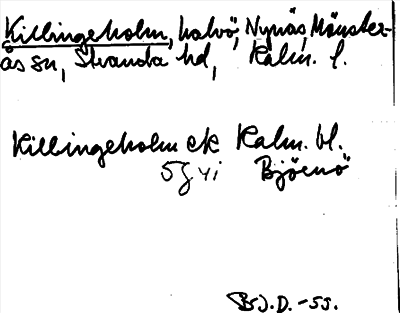 Killingeholm, halvö, Nynäs, Mönster-
ås sn, Stranda hd, Kalm. l.
Killingeholm ek Kalm. bl.
5J yi Björnö
Bj.D. -55.